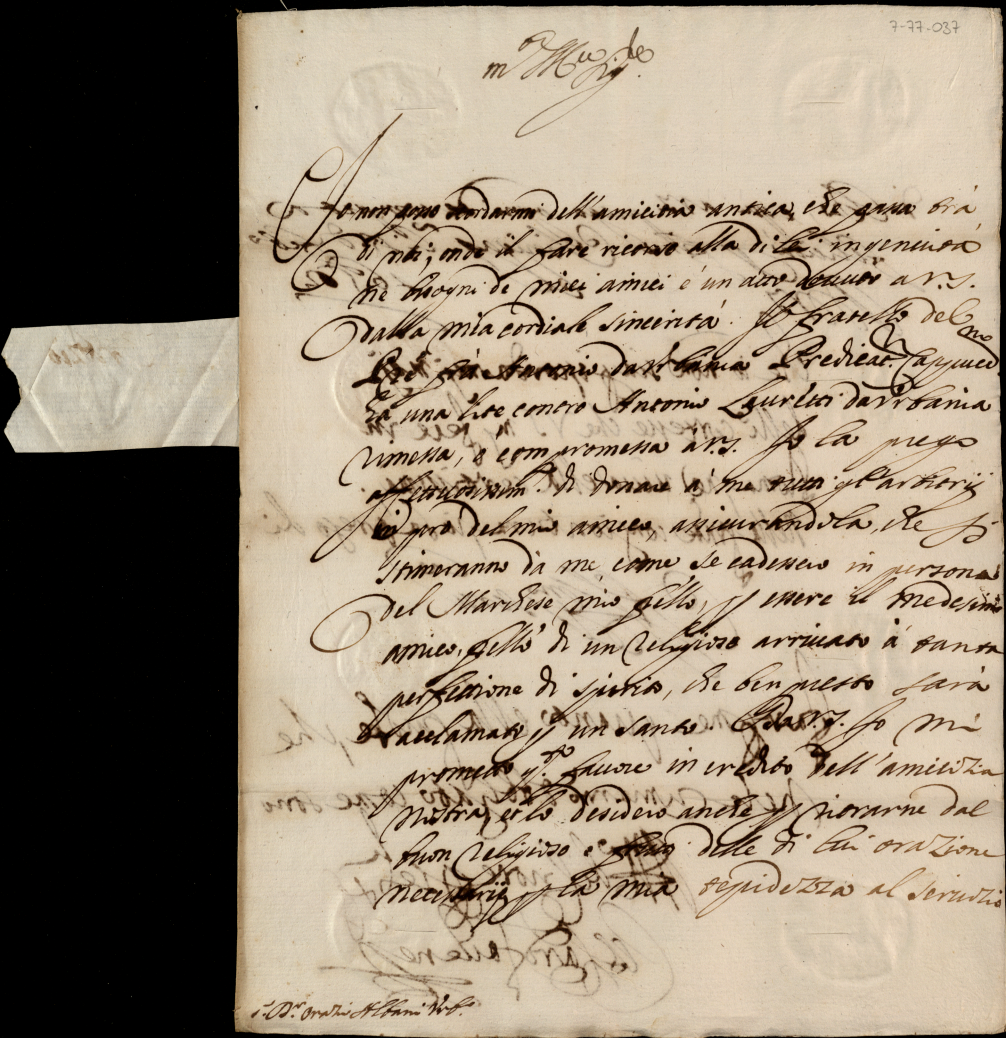 7-77-037
Io non posso scordarmi dell'amicitia antica, che passa trà
di noi; onde il fare ricorso alla di lei ingenuità
ne bisogni de miei amici è un atto douuto a V.S.
dalla mia cordiale sincerità. Il fratello del
Pre frà Antonio da Vrbania Predicat.r Cappucc.no
hà una lite contro Antonio Lauretti da Vrbania
rimessa, e compromessa à V.S. Io la prego
affettuosissim.e di donare à me tutti gl'arbitrij
in prò del mio amico, assicurandola, che si
stimeranno da me come se cadessero in persona
del Marchese mio fillo, p essere il medesimo
amico, fillo di un religioso arriuato à tanta
perfettione di spirito, che ben presto sarà
acclamato p un santo. Da V.S. Io mi
prometto q.to fauore in credito dell'amicizia
nostra, et lo desidero anche p
buon religioso e delle di lui orazione
necessarij p la mia tepidezza al seruizio
S.r D.r Orazio Albani Vrb.o